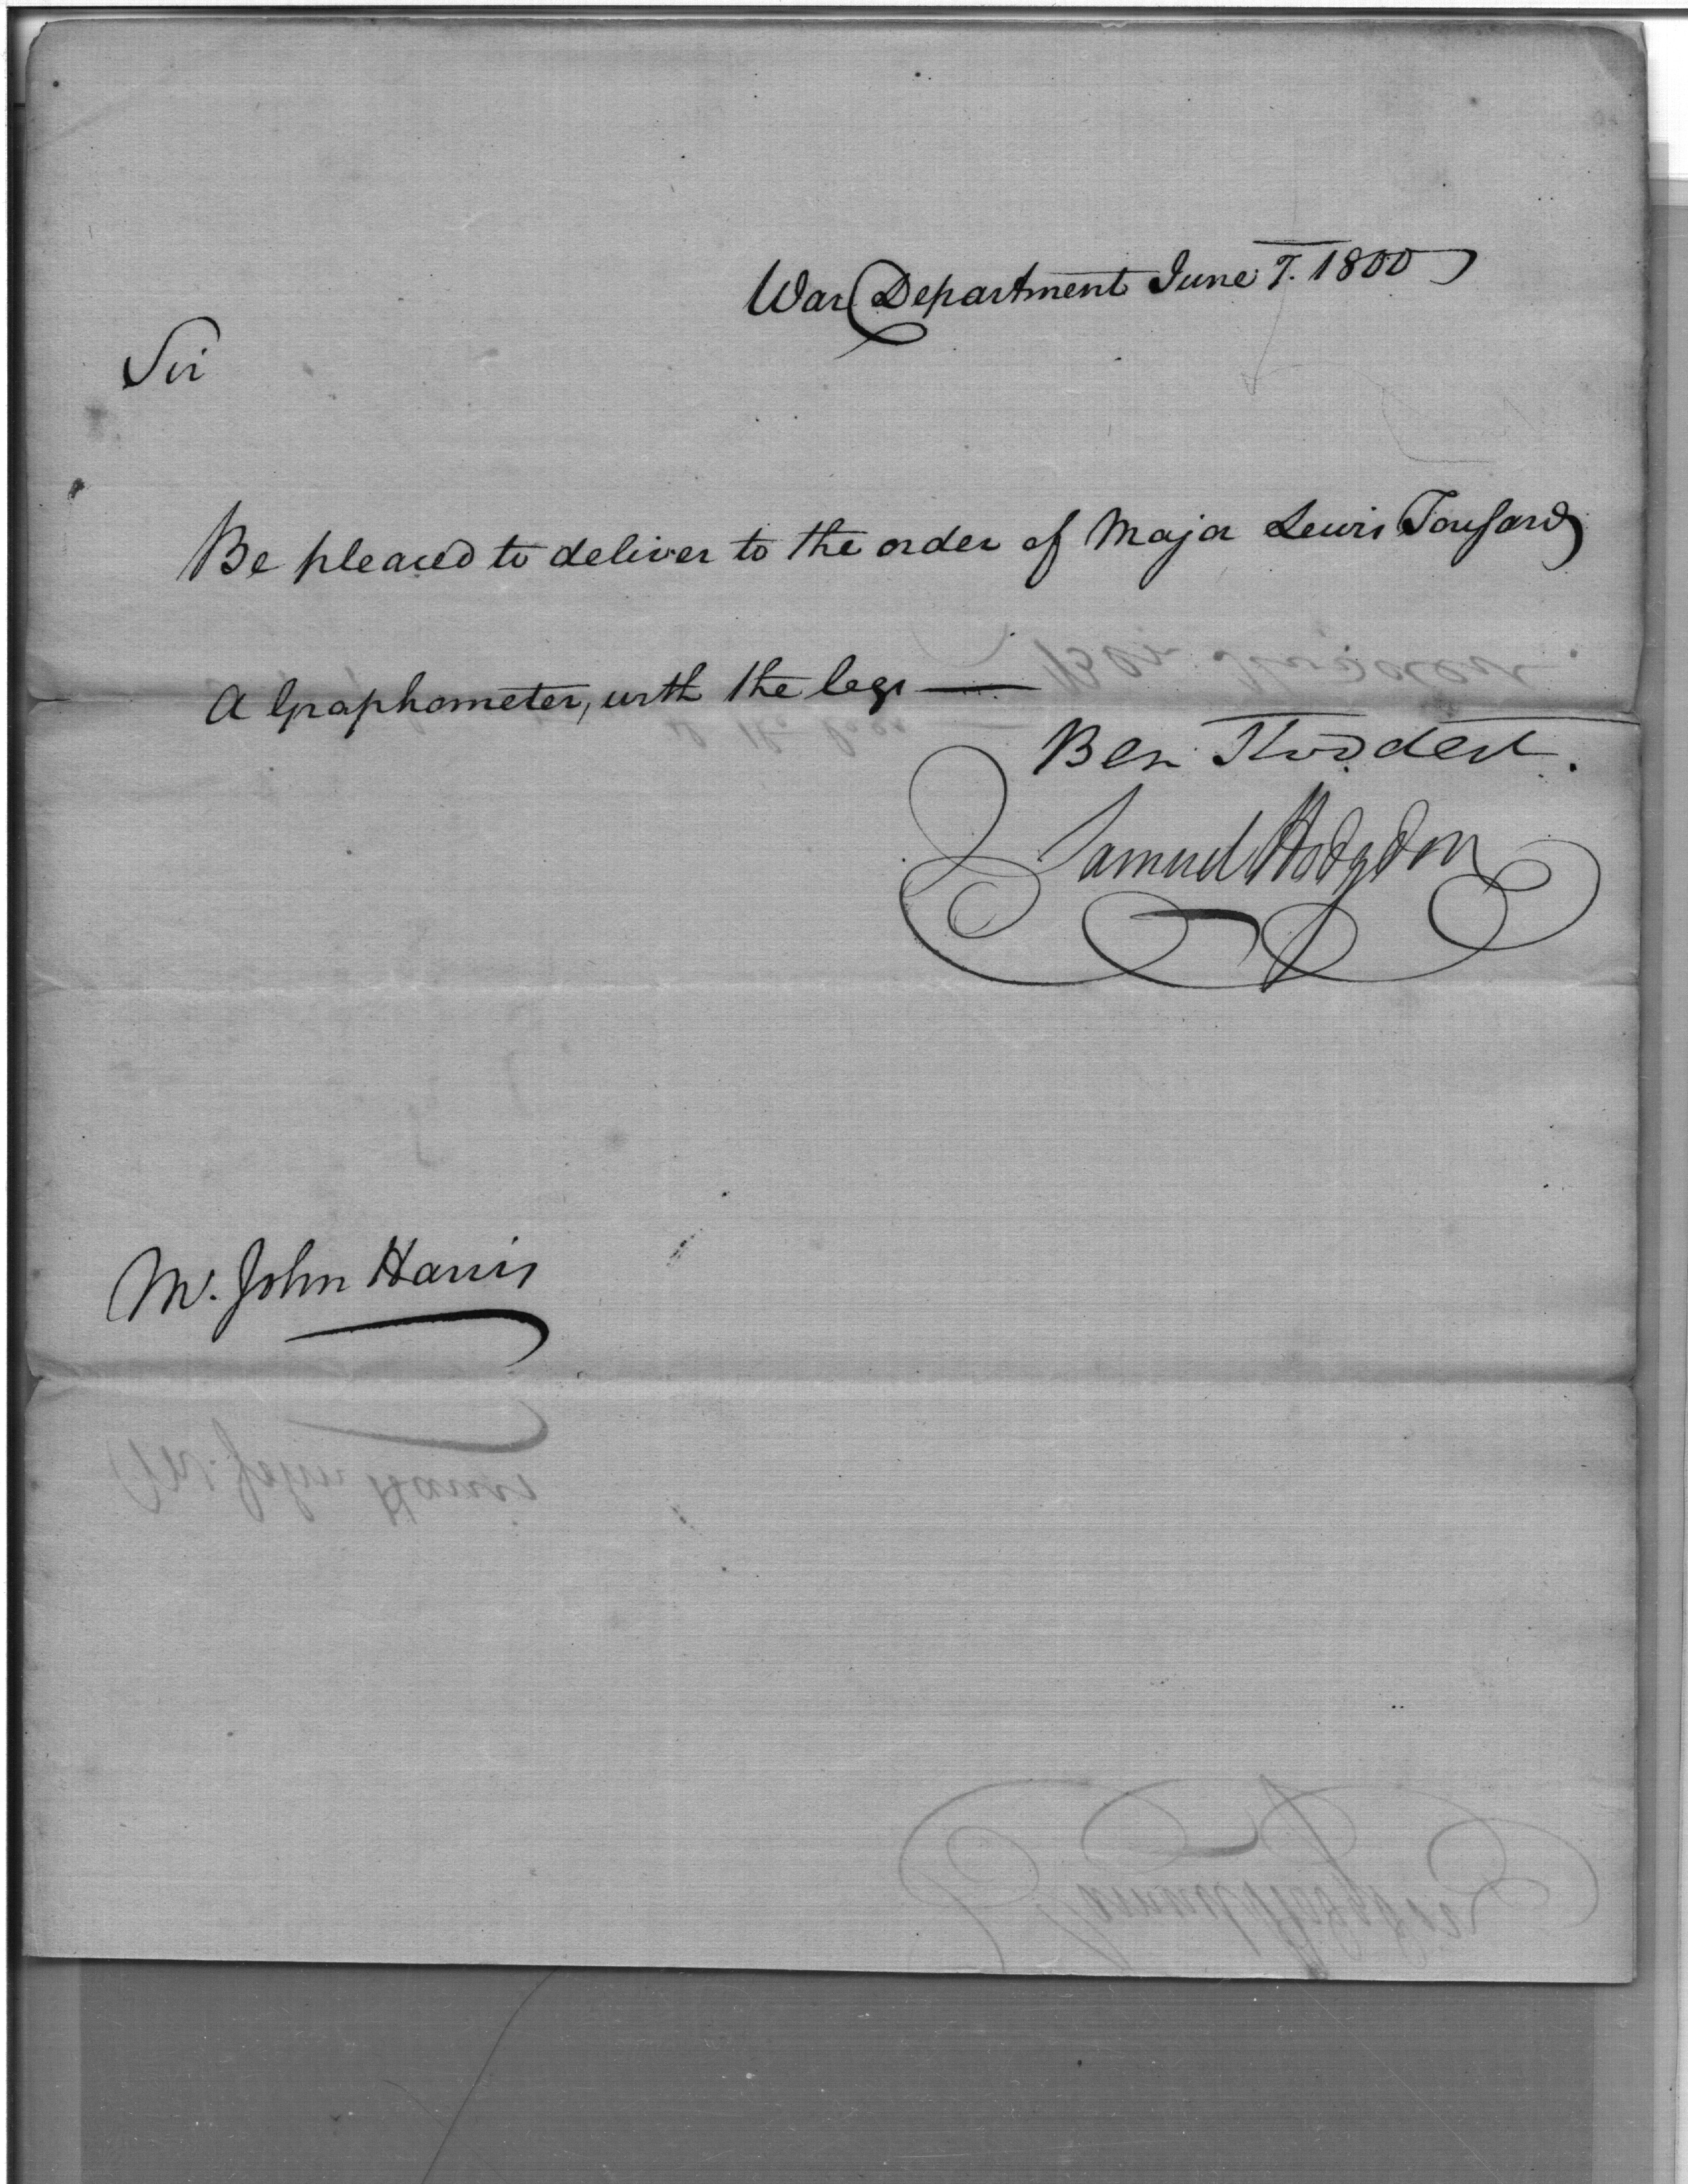 War Department June 7. 1800
Sir
Be pleased to deliver to the order of Major Lewis Tousard
A Graphometer, with the legs —
Ben Stoddert.
Samuel Hodgdon
Mr. John Harris